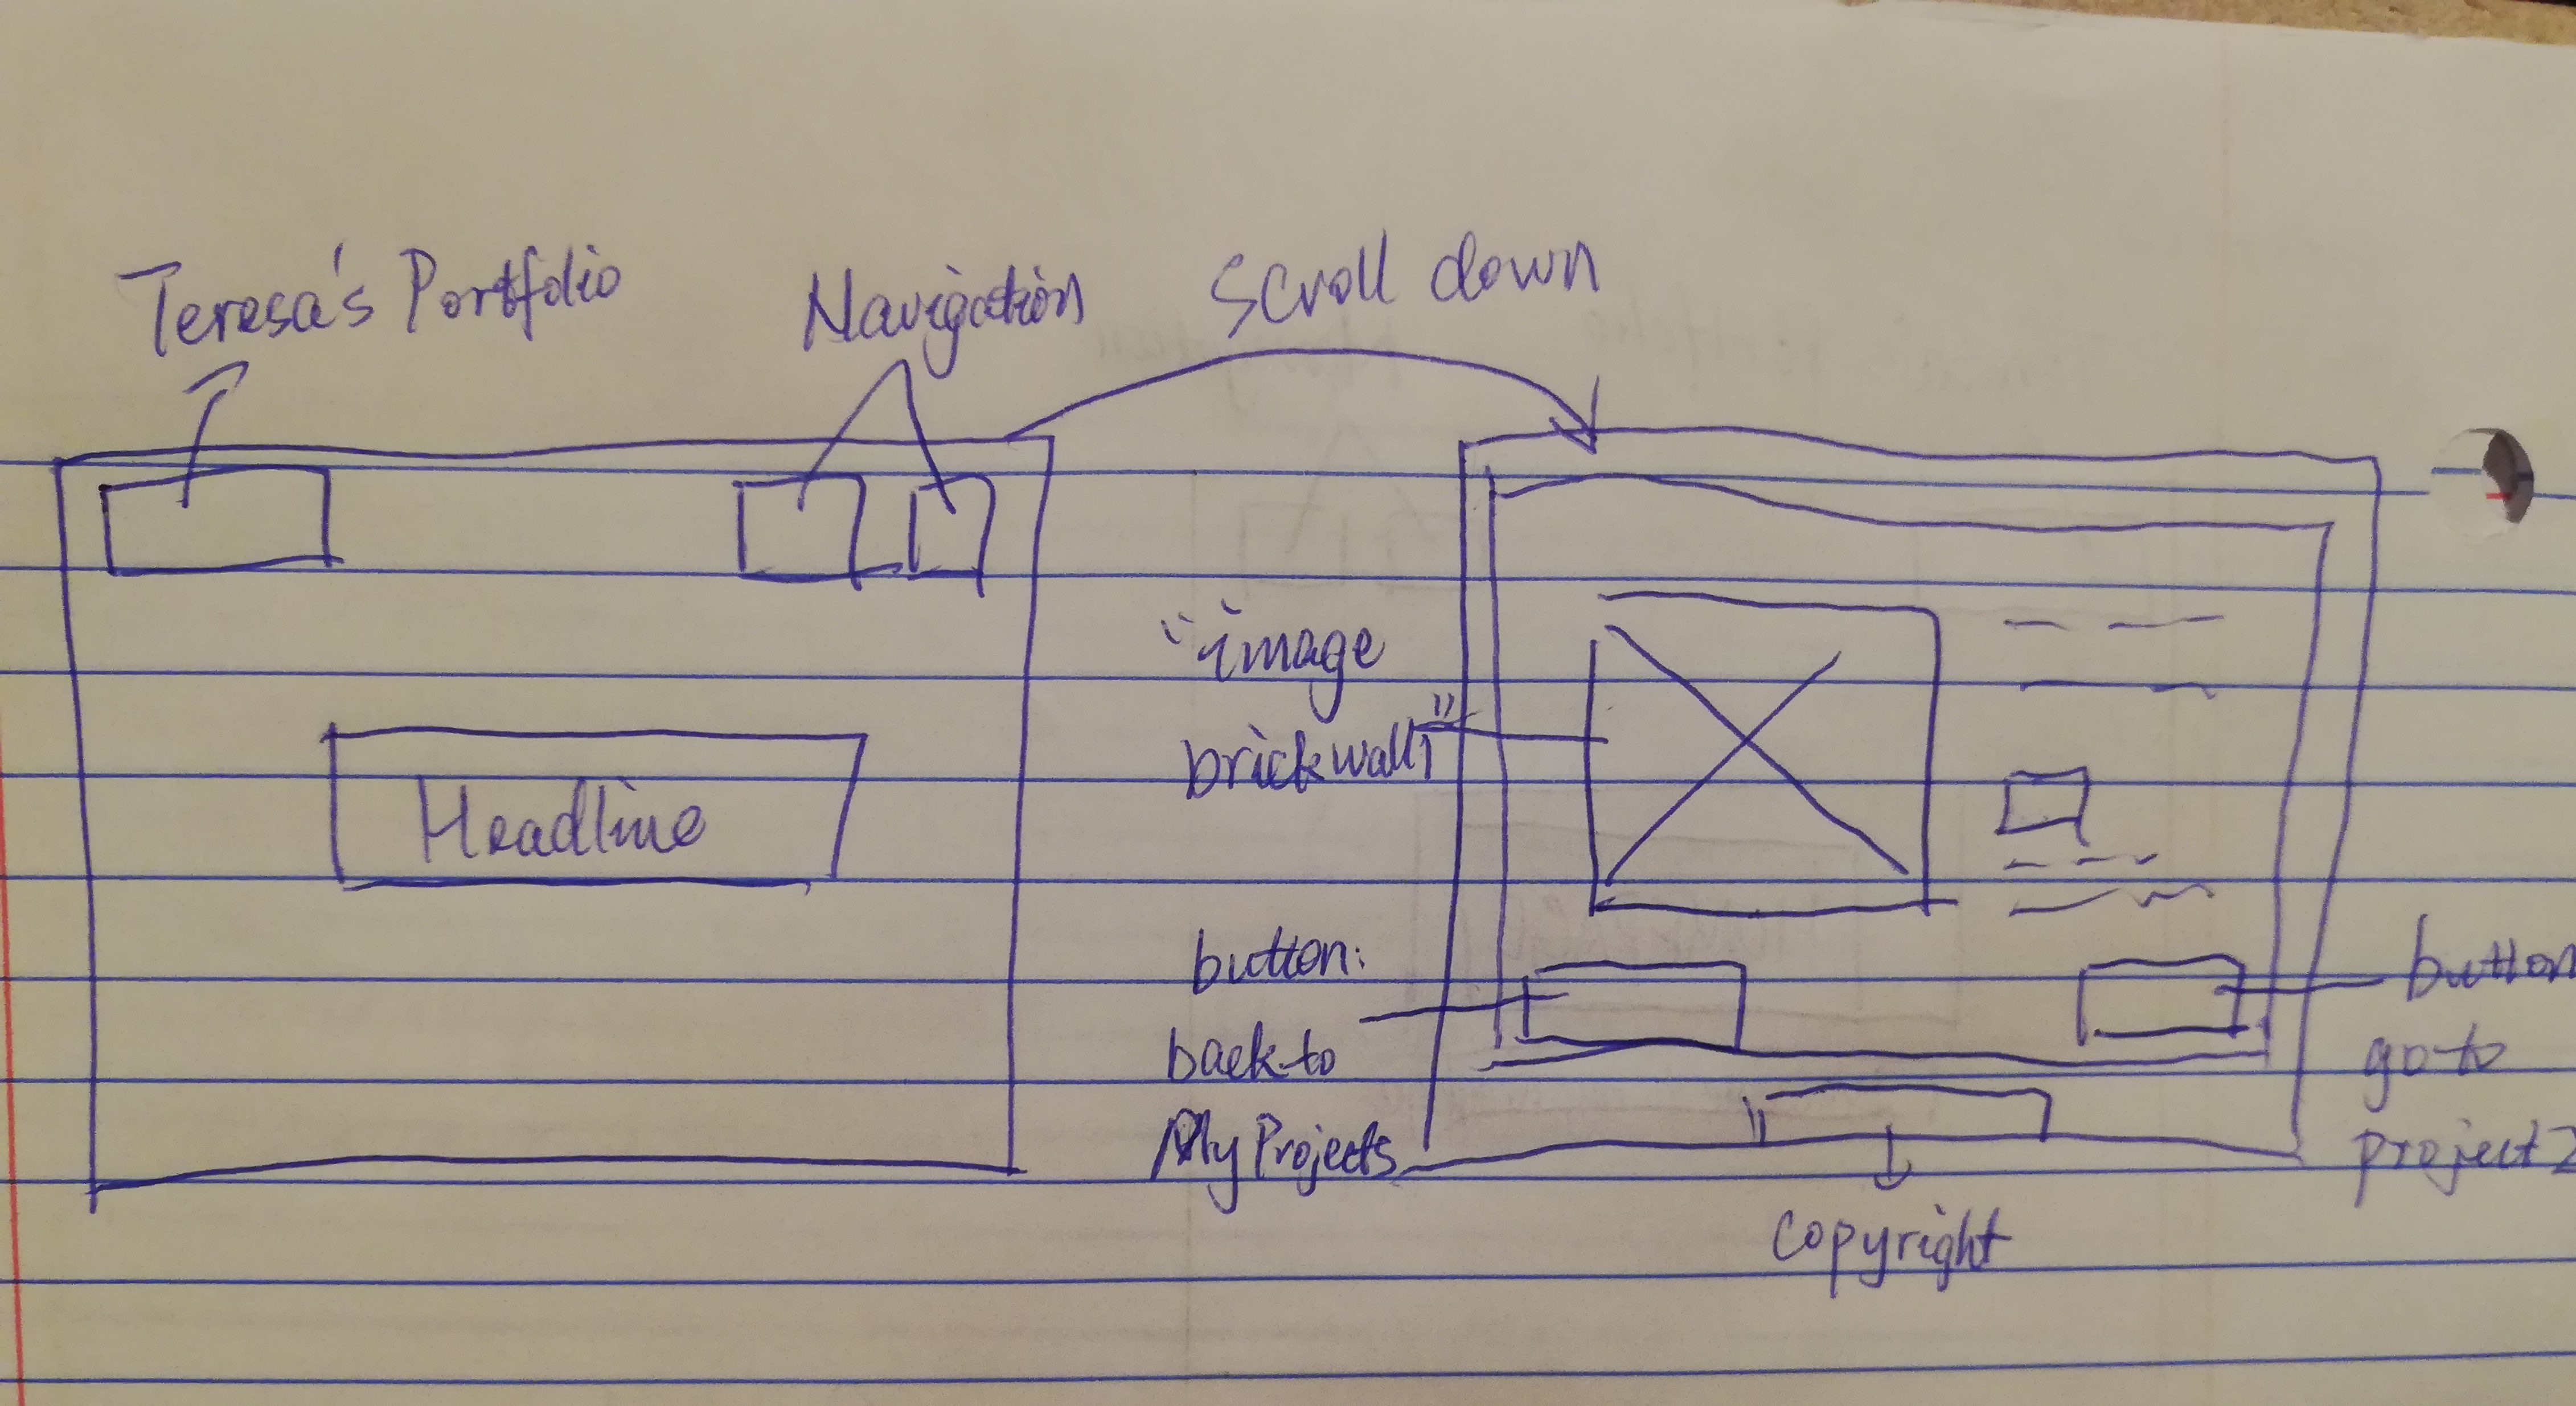 Teresa's Portfolio
Navigation
Scroll down
Headline
"image
brickwall"
button:
back to
My Projects
button
go to
project 2
copyright